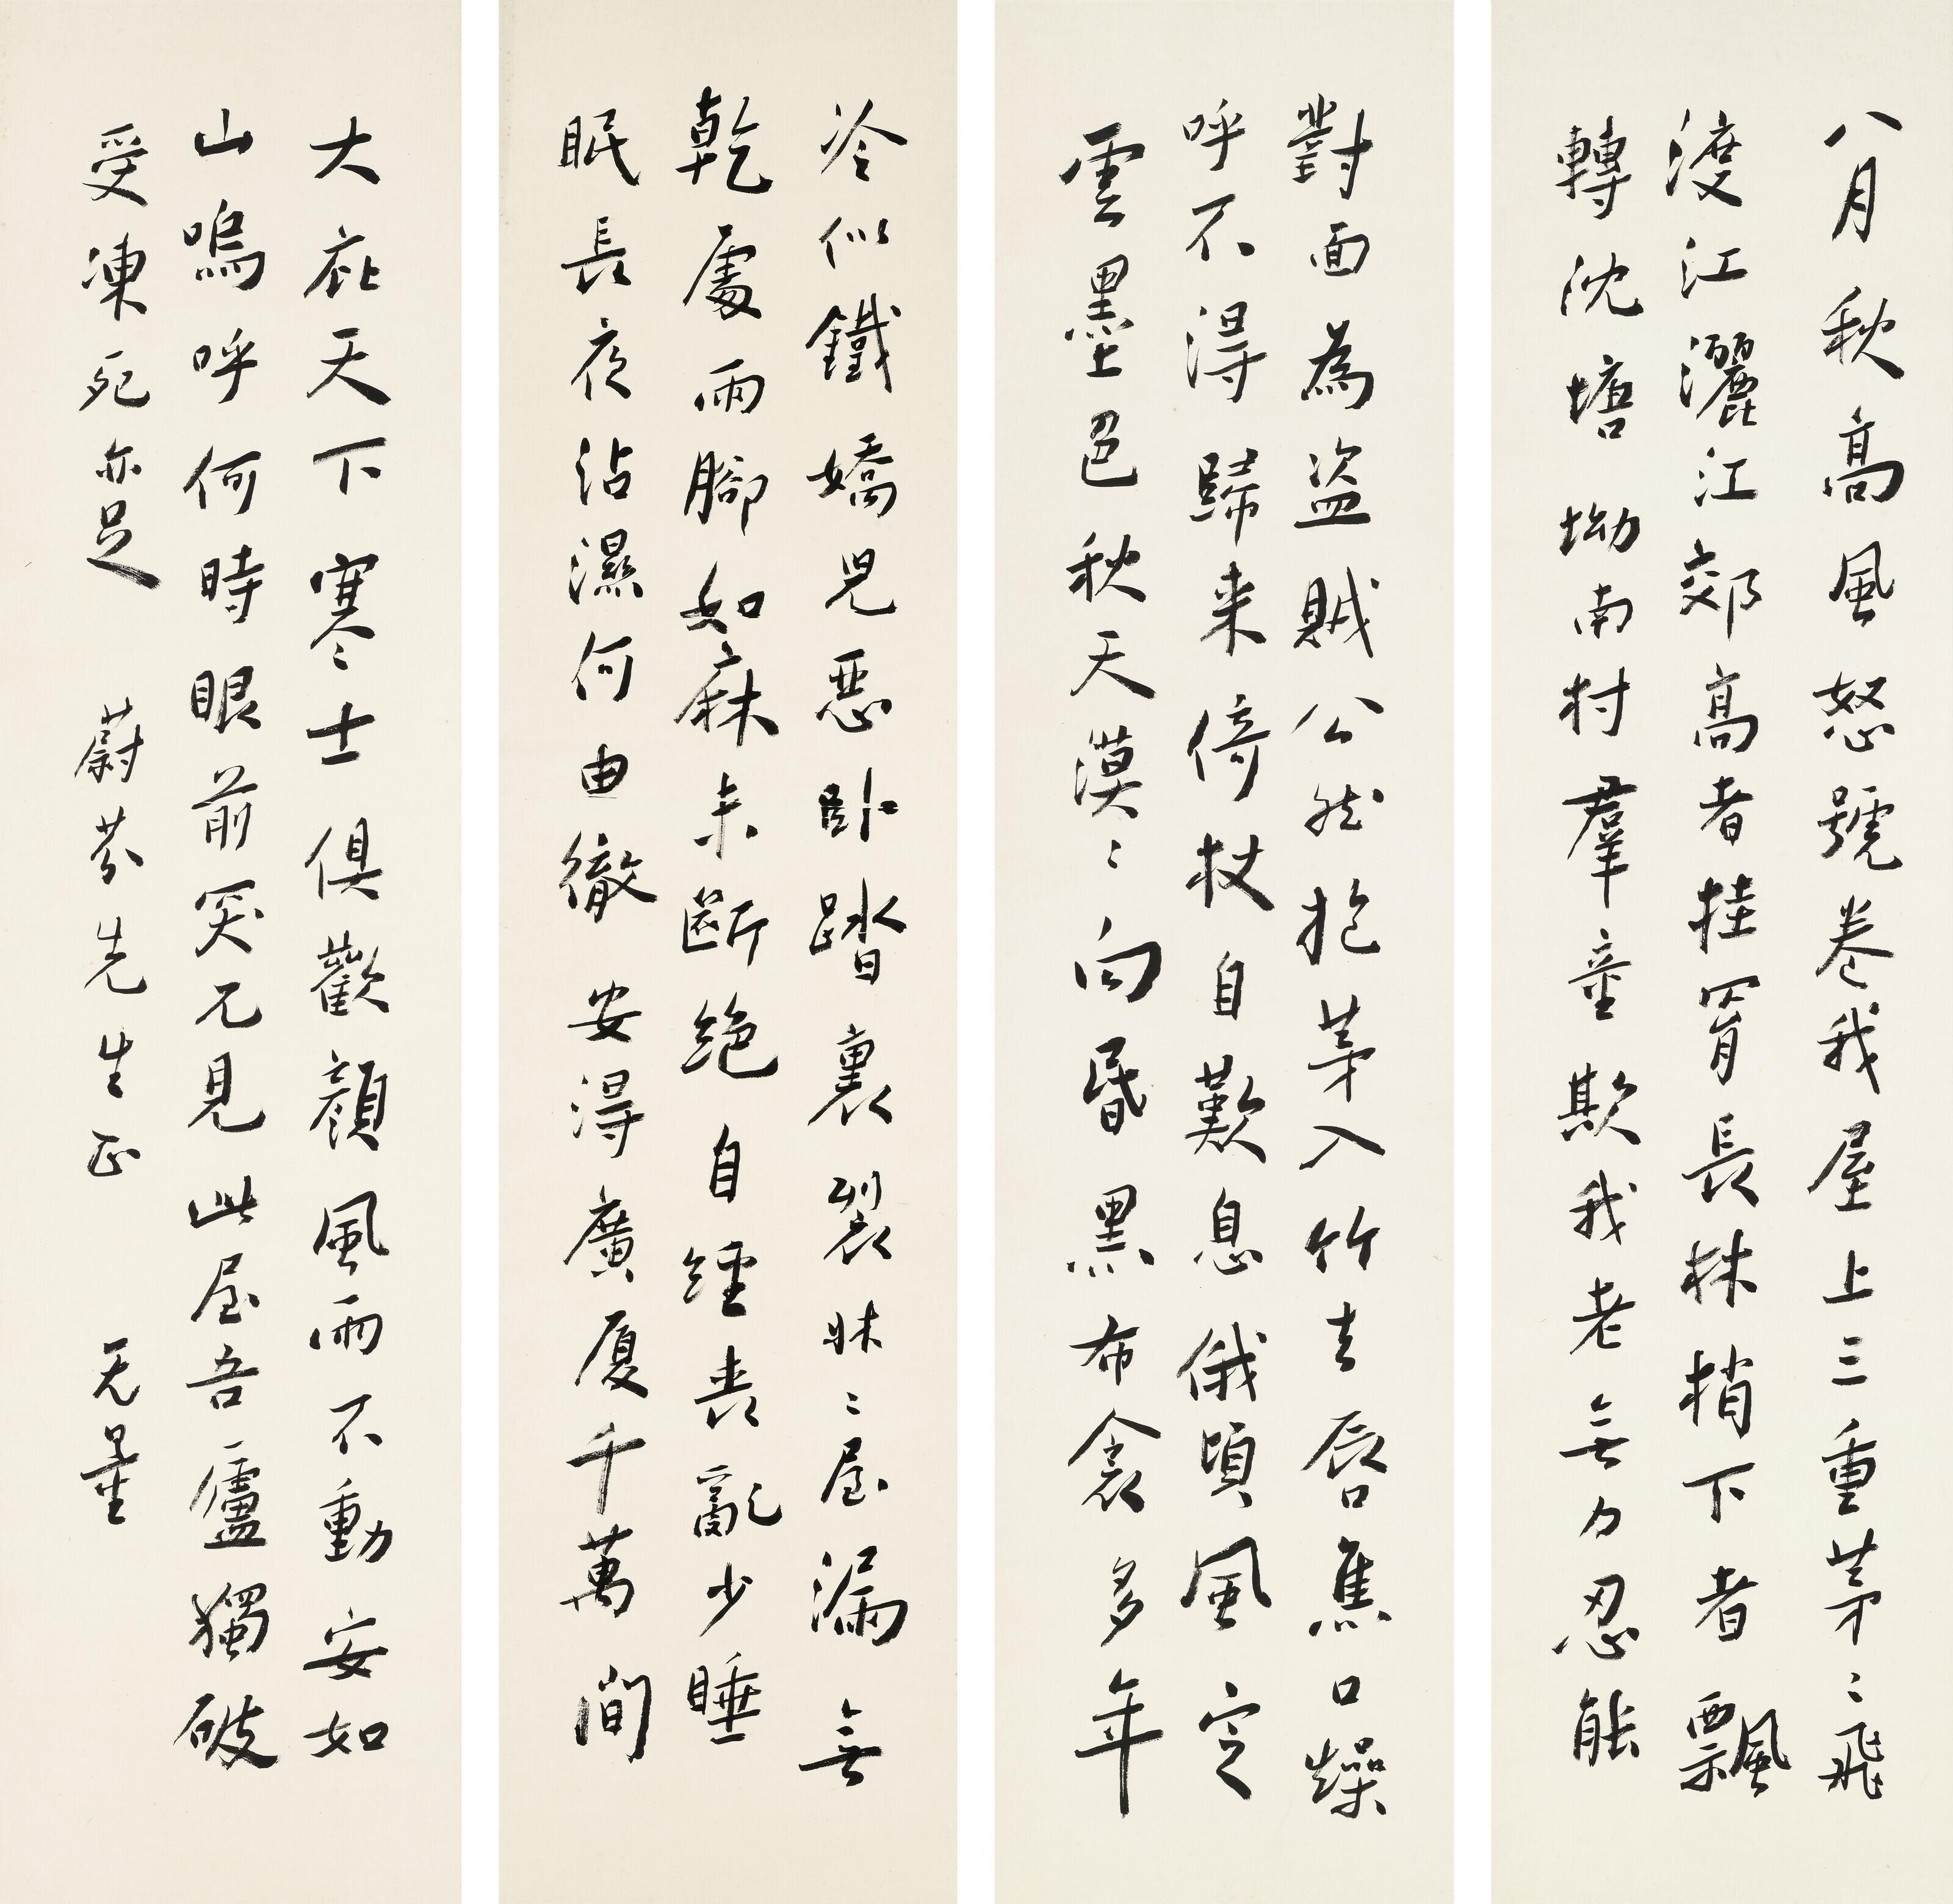 八月秋高風怒號卷我屋上三重茅〻飛
渡江灑江郊高者挂罥長林梢下者飄
轉沈塘坳南村羣童欺我老無力忍能
對面為盜賊公然抱茅入竹去唇焦口燥
呼不得歸来倚杖自歎息俄頃風定
雲墨色秋天漠〻向昏黑布衾多年
冷似鐵嬌兒惡卧踏裏裂牀〻屋漏無
乾處雨腳如麻未斷絕自經喪亂少睡
眠長夜沾濕何由徹安得廣厦千萬間
大庇天下寒士俱歡顏風雨不動安如
山嗚呼何時眼前突兀見此屋吾廬獨破
受凍死亦足
蔚芬先生正
无量